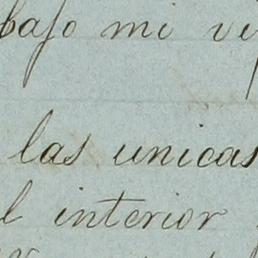 bajo mi
las unicas
l interior